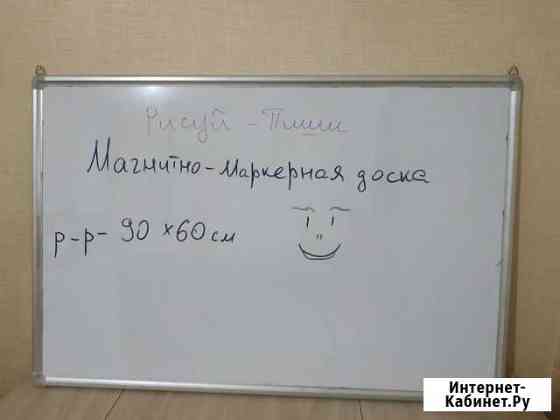 Рисуй - Пиши
Магнитно-маркерная доска
р-р- 90 х60 см
Интернет-
Кабинет.Ру